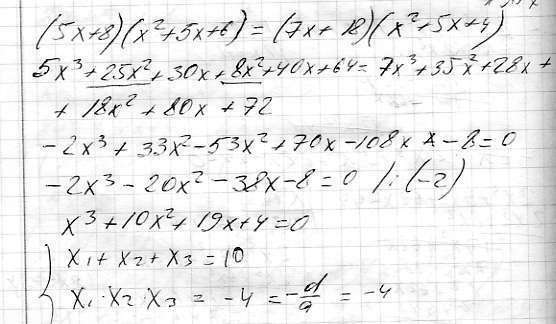 (5x+8)(x²+5x+6) = (7x+18)(x²+5x+4)
5x³+25x²+30x+8x²+40x+64= 7x³+35x²+28x+
+ 18x² + 80x + 72
-2x³ + 33x²-53x²+70x-108x -8=0
-2x³ - 20x² - 38x-8=0 /:(-2)
x³+10x²+19x+4=0
x₁+x₂+x₃=10
x₁·x₂·x₃ = -4 =-d/a = -4